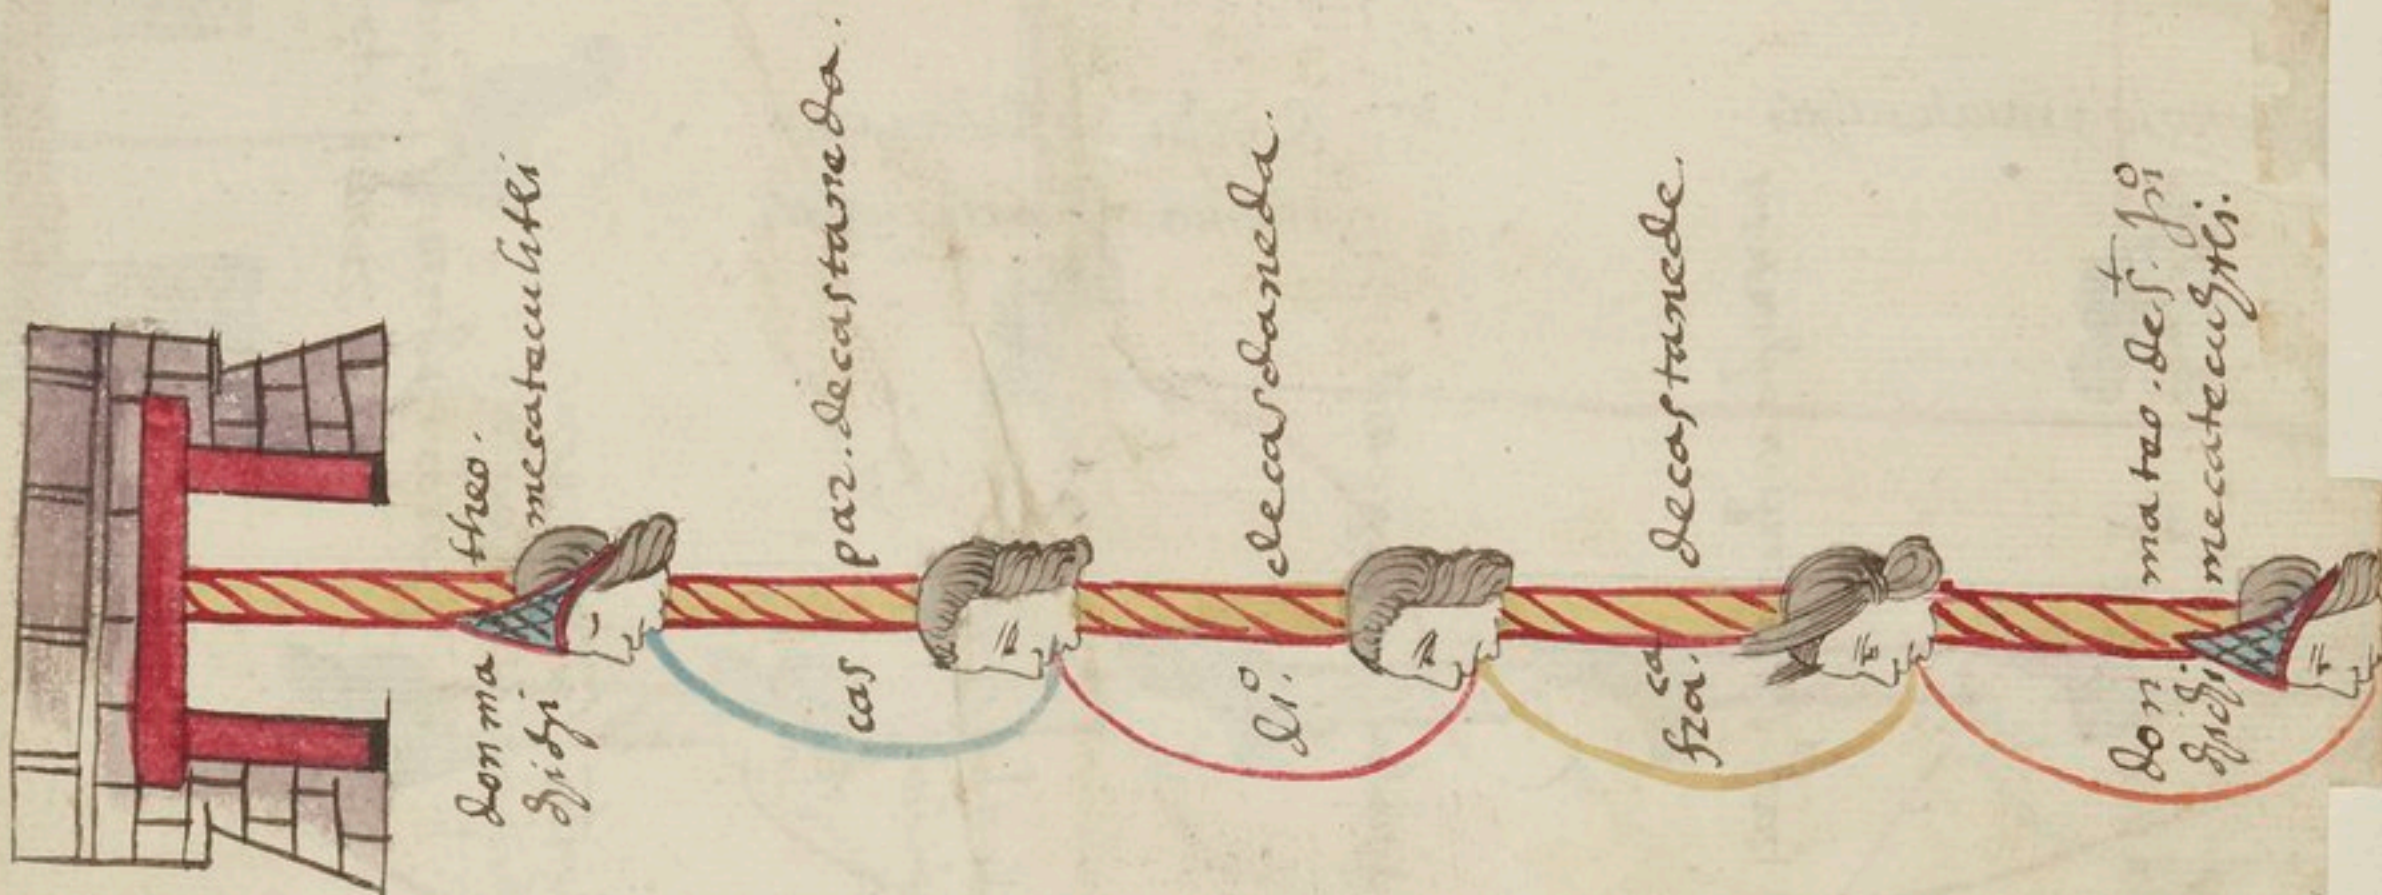 don ma theo.
chichi mecatecuhtli
cas par. decastaneda.
di.º decastaneda.
fra.ca decastaneda.
don mateo. de s.t
chichi mecatecuhtli.